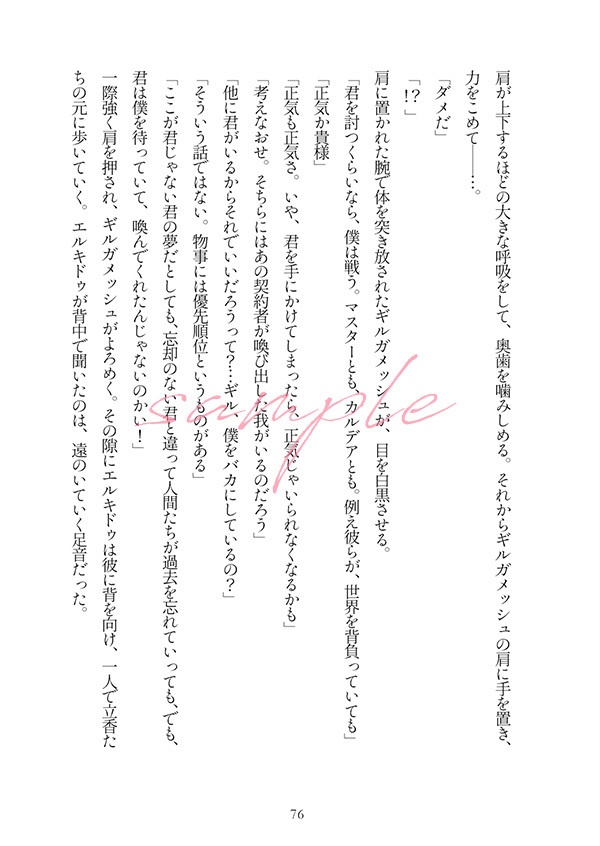 肩が上下するほどの大きな呼吸をして、奥歯を噛みしめる。それからギルガメッシュの肩に手を置き、
力をこめて――…。
「ダメだ」
「!?」
肩に置かれた腕で体を突き放されたギルガメッシュが、目を白黒させる。
「君を討つくらいなら、僕は戦う。マスターとも、カルデアとも。例え彼らが、世界を背負っていても」
「正気か貴様」
「正気も正気さ。いや、君を手にかけてしまったら、正気じゃいられなくなるかも」
「考えなおせ。そちらにはあの契約者が喚び出した我がいるのだろう」
「他に君がいるからそれでいいだろうって?…ギル、僕をバカにしているの?」
「そういう話ではない。物事には優先順位というものがある」
「ここが君じゃない君の夢だとしても、忘却のない君と違って人間たちが過去を忘れていっても、でも、
君は僕を待っていて、喚んでくれたんじゃないのかい!」
一際強く肩を押され、ギルガメッシュがよろめく。その隙にエルキドゥは彼に背を向け、一人で立香た
ちの元に歩いていく。エルキドゥが背中で聞いたのは、遠のいていく足音だった。
sample
76